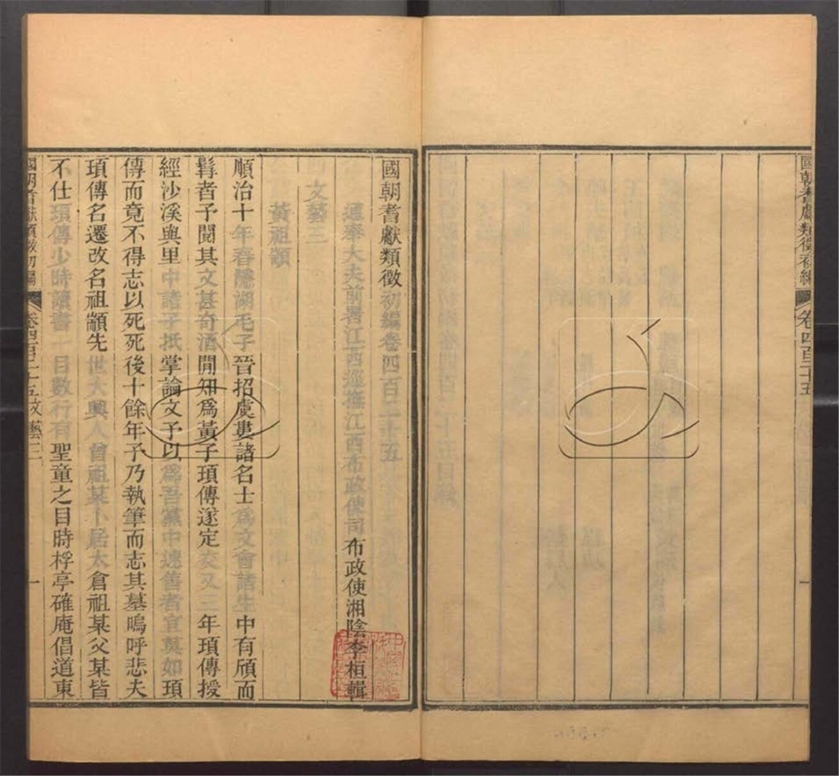 國朝耆獻類徵初編
卷四百二十五
國朝耆獻類徵初編卷四百二十五
通奉大夫前署江西巡撫江西布政使司布政使湘陰李桓輯
文藝三
黃祖顓
順治十年春隱湖毛子晉招虞婁諸名士為文會諸生中有頎而
髯者予閱其文甚奇酒閒知為黃子頊傳遂定交又二年頊傳授
經沙溪與里中諸子抵掌論文予以為吾黨中速售者宜莫如頊
傳而竟不得志以死死後十餘年予乃執筆而志其墓嗚呼悲夫
頊傳名遷改名祖顓先世大興人曾祖某卜居太倉祖某父某皆
不仕頊傳少時讀書一目數行有聖童之目時桴亭確庵倡道東
國朝耆獻類徵初編
卷四百二十五文藝三
一